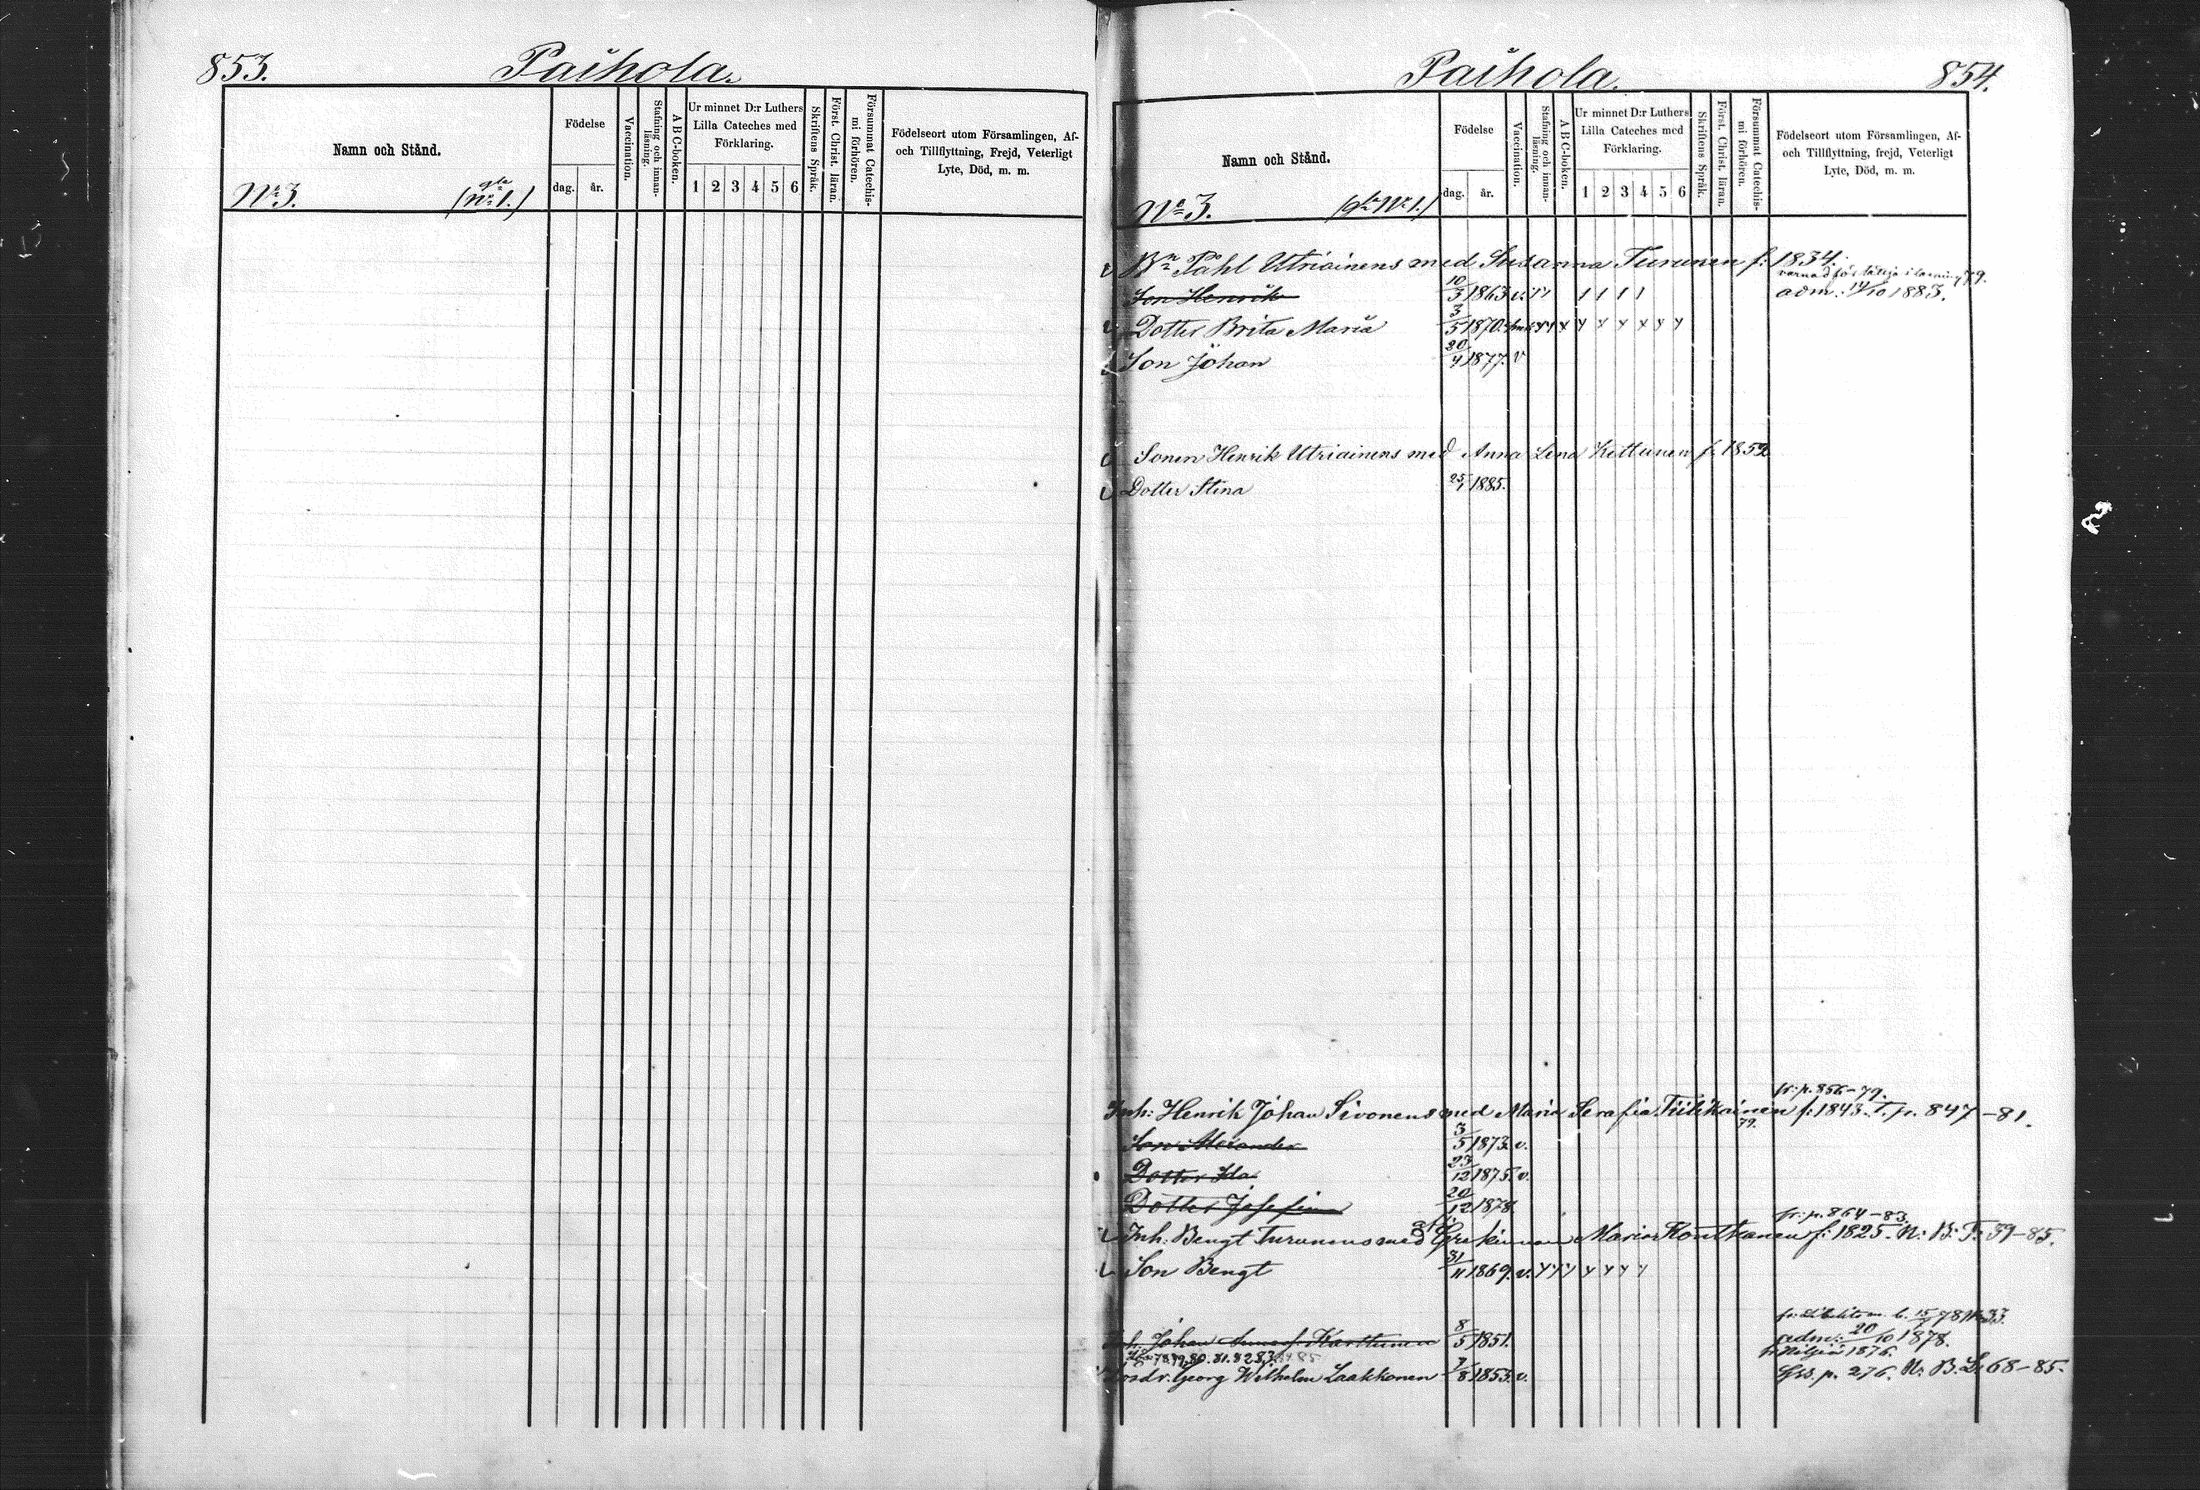 853.
Paihola.
Namn och Stånd.
Födelse
dag.
år.
Vaccination.
Stafning och innan-
läsning.
A B C-boken.
Ur minnet D:r Luthers
Lilla Cateches med
Förklaring.
1 2 3 4 5 6
Skriftens Språk.
Först. Christ. läran.
Försummat Catechis-
mi förhören.
Födelseort utom Församlingen, Af-
och Tillflyttning, Frejd, Veterligt
Lyte, Död, m. m.
No 3.
(gla No 1.)
Paihola.
854.
Namn och Stånd.
Födelse
dag.
år.
Vaccination.
Stafning och innan-
läsning.
A B C-boken.
Ur minnet D:r Luthers
Lilla Cateches med
Förklaring.
1 2 3 4 5 6
Skriftens Språk.
Först. Christ. läran.
Försummat Catechis-
mi förhören.
Födelseort utom Församlingen, Af-
och Tillflyttning, frejd, Veterligt
Lyte, Död, m. m.
No 3.
(gla No 1.)
Bn Påhl Utriainens med Susanna Turunen f: 1834.
varnad för i 79.
Son Henrik 10/3 1863 v. adm. 14/10 1883.
Dotter Brita Maria 3/5 1870.
Son Johan 20/4 1877. v
Sonen Henrik Utriainens med Anna Lena Kettunen f. 1859
Dotter Stina 25/1 1885.
fr: p. 856-79.
Inh: Henrik Johan Sivonens med Maria Serafia Tiilikainen f: 1843. T. p. 847-81.
79.
Son Alexander 3/5 1873. v.
Dotter Ida 23/12 1875. v.
Dotter Josefina 20/12 1878
fr: p. 864-83.
Inh: Bengt Turunens med Maria Kontkanen f: 1825. N: B: T: 39-85.
Son Bengt 31/ 1869. v.
fr: b. 15/ 78 No 33.
Inh. Johan Karttunen 8/5 1851. adm: 20/10 1878.
78. 79. 80. 81. 82 83. 84 85
fr 1876.
Losdr. Georg Wilhelm Laakkonen 7/8 1853. v. p. 276. N: B. L: 68-85.